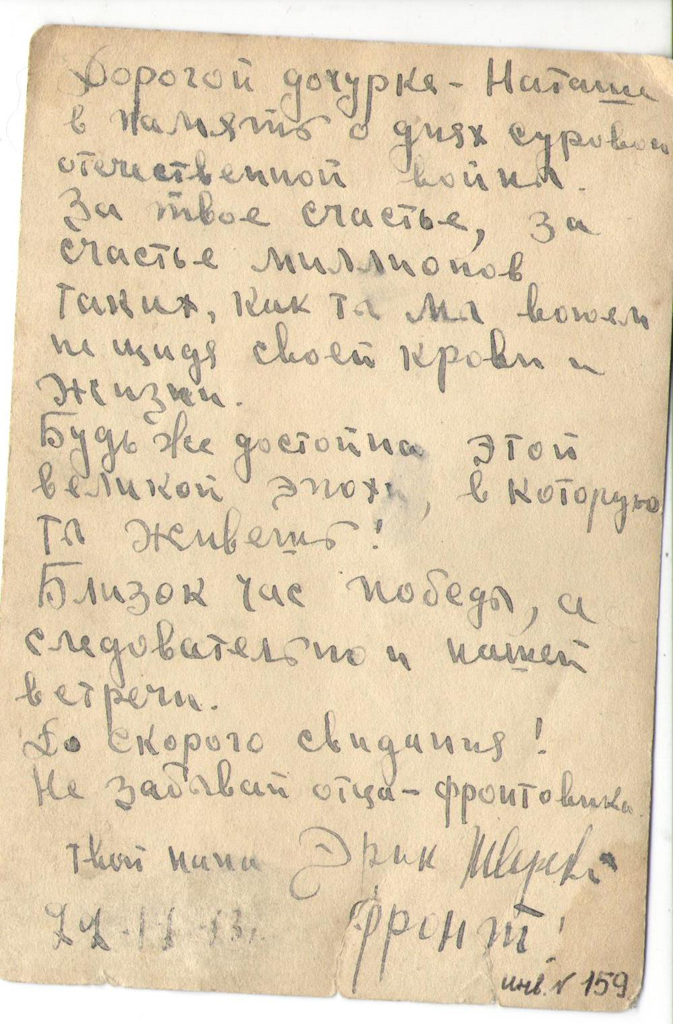 Дорогой дочурке - Наташе
в память о днях суровой
отечественной войны.
За твое счастье, за
счастье миллионов
таких, как ты мы воюем
не щидя своей крови и
жизни.
Будь же достойна этой
великой эпохи, в которую
ты живешь!
Близок час победы, а
следовательно и нашей
встречи.
До скорого свидания!
Не забывай отца-фронтовика
твой папа Эрик
Фронт!
инв. № 159